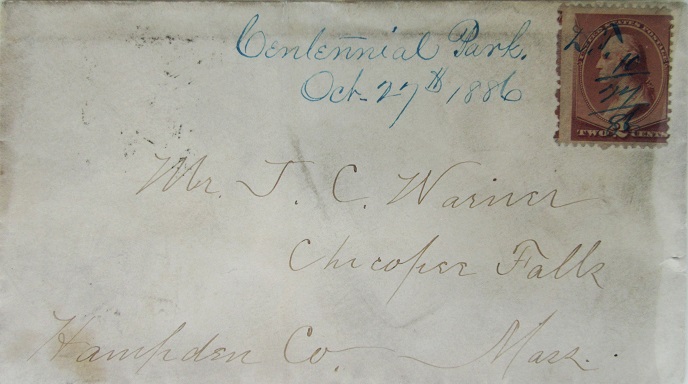 Centennial Park.
Oct. 27th 1886
UNITED STATES POSTAGE
10
27
86
TWO 2 CENTS
Mr. J. C. Warner
Chicopee Falls
Hampden Co. Mass.